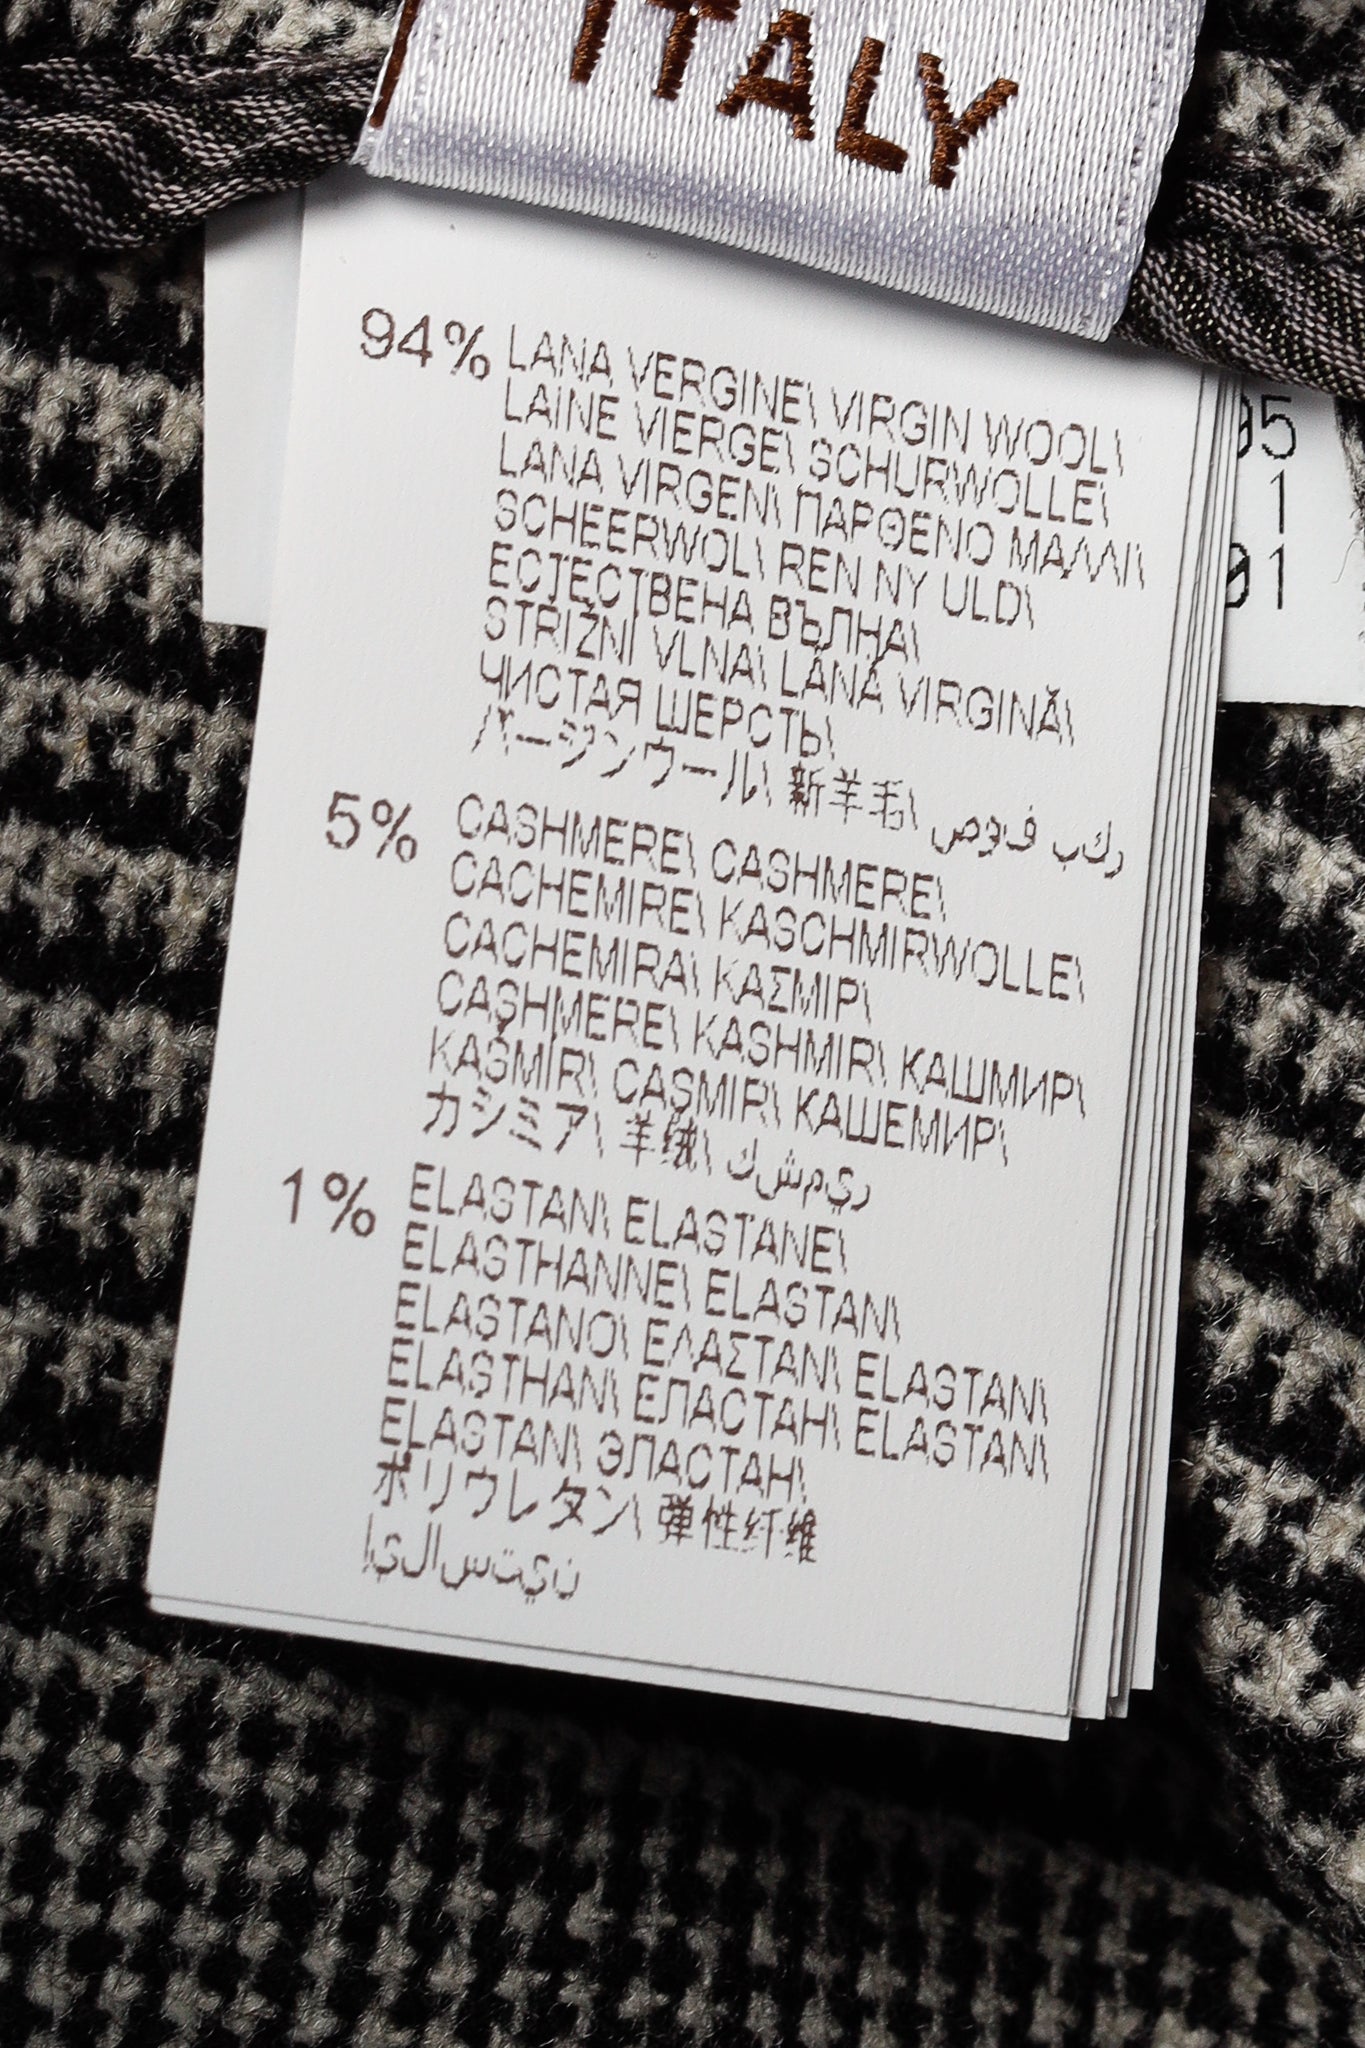 ITALY
94% LANA VERGINE\ VIRGIN WOOL\
LAINE VIERGE\ SCHURWOLLE\
LANA VIRGEN\ ΠΑΡΘΕΝΟ ΜΑΛΛΙ\
SCHEERWOL\ REN NY ULD\
ЕСТЕСТВЕНА ВЪЛНА\
STŘIŽNÍ VLNA\ LÂNĂ VIRGINĂ\
ЧИСТАЯ ШЕРСТЬ\
バージンウール\ 新羊毛\ صوف بكر
5% CASHMERE\ CASHMERE\
CACHEMIRE\ KASCHMIRWOLLE\
CACHEMIRA\ ΚΑΣΜΙΡ\
CASHMERE\ KASHMIR\ КАШМИР\
KAŠMÍR\ CAȘMIR\ КАШЕМИР\
カシミア\ 羊绒\ كشمير
1% ELASTAN\ ELASTANE\
ELASTHANNE\ ELASTAN\
ELASTANO\ ΕΛΑΣΤΑΝ\ ELASTAN\
ELASTHAN\ ЕЛАСТАН\ ELASTAN\
ELASTAN\ ЭЛАСТАН\
ポリウレタン\ 弹性纤维
إيلاستين
05
1
01